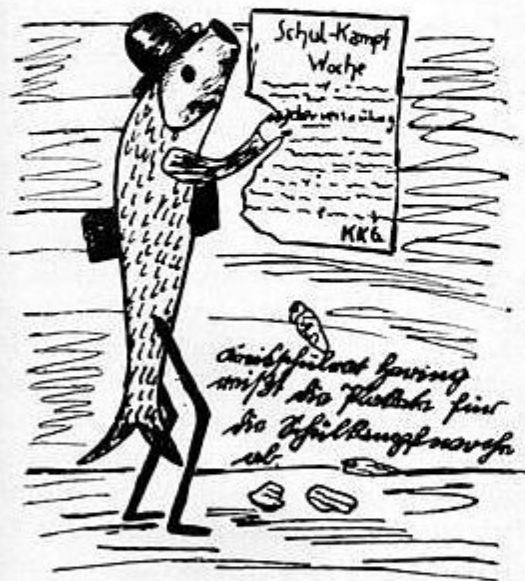 Schul-Kampf
Woche
KKG.
Kreisschulrat Hering
reißt die Plakate für
die Schulkampfwoche
ab.